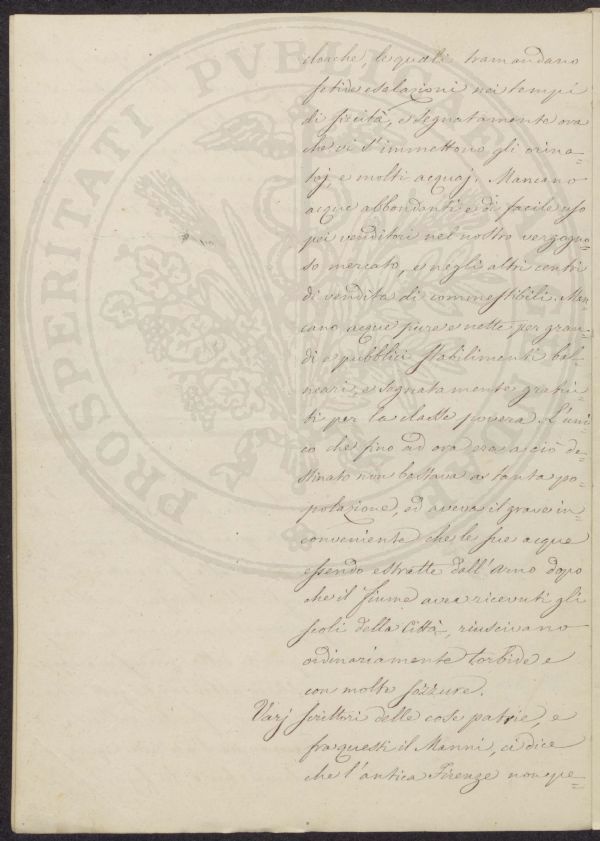 cloache, le quali tramandano
fetide esalazioni nei tempi
di siccità, e segnatamente ora
che vi s'immettono gli orina=
toj, e molti acquaj. Mancano
acque abbondanti e di facile uso
pei venditori nel nostro vergogno=
so mercato, e negli altri centri
di vendita di commestibili. Man=
cano acque pure e nette per gran=
di e pubblici stabilimenti bal=
neari, e segnatamente gratui=
ti per la classe povera. L'uni=
co che fino ad ora era a ciò de=
stinato non bastava a tanta po=
polazione, ed aveva il grave in=
conveniente che le sue acque
essendo estratte dall'Arno dopo
che il fiume avea ricevuti gli
scoli della Città, riuscivano
ordinariamente torbide e
con molte sozzure.
Varj scrittori delle cose patrie, e
fra questi il Manni, ci dice
che l'antica Firenze non pe=
PROSPERITATI PVBLICAE